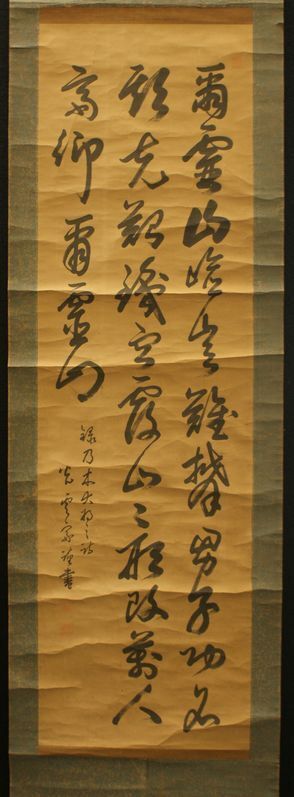 爾靈山嶮豈難攀男子功名
期克艱鐵血覆山々形改萬人
齊仰爾靈山
録乃木大将之詩
光雲書